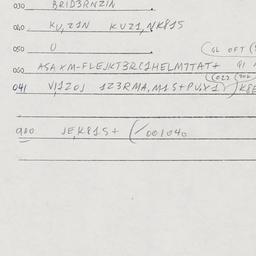 030 BRID3RNZIN
040 KU,Z1N KUZ1,NK815
050 U
(GL OFT (
060 ASAXM-FLEJKT3RC1HELM7TAT+ 91
(023 (
041 V1,1Z0J 1Z3RMA,M15+PU,X1) K8E
900 JE,K815+ (/001040